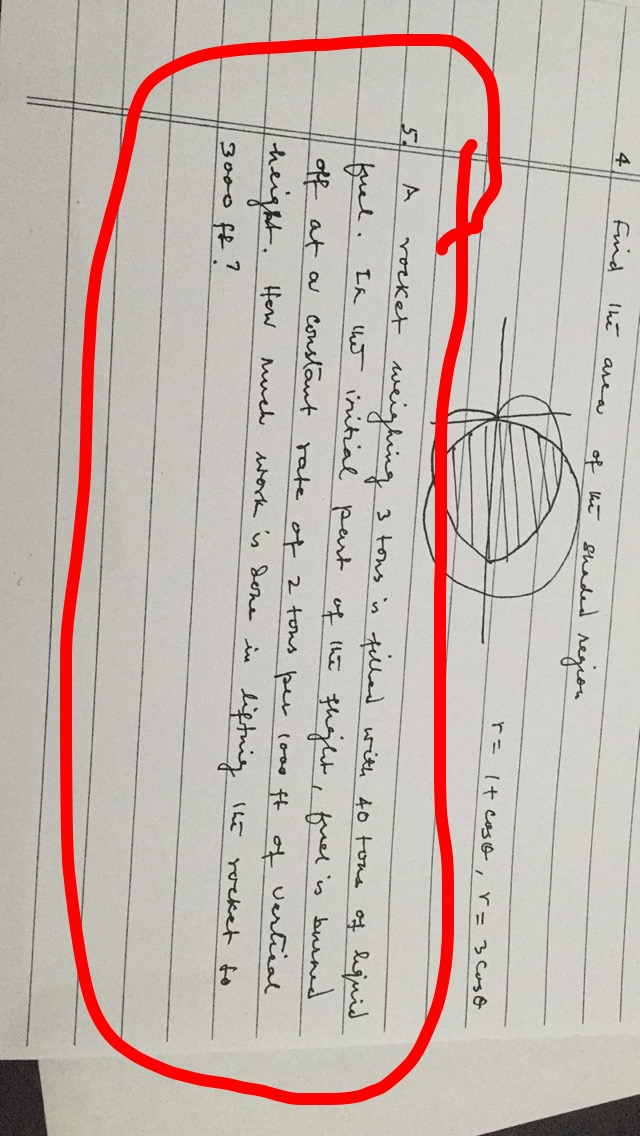 4. Find the area of the shaded region
r = 1 + cosθ, r = 3 cosθ
5. A rocket weighing 3 tons is filled with 40 tons of liquid
fuel. In the initial part of the flight, fuel is burned
off at a constant rate of 2 tons per 1000 ft of vertical
height. How much work is done in lifting the rocket to
3000 ft?